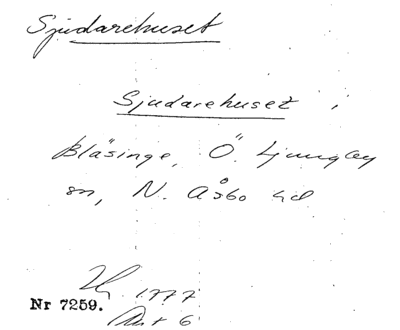 Sjudarehuset
Sjudarehuset i
Bläsinge, Ö. Ljungby
sn, N. Åsbo hd
1777
Nr 7259.
Akt 6